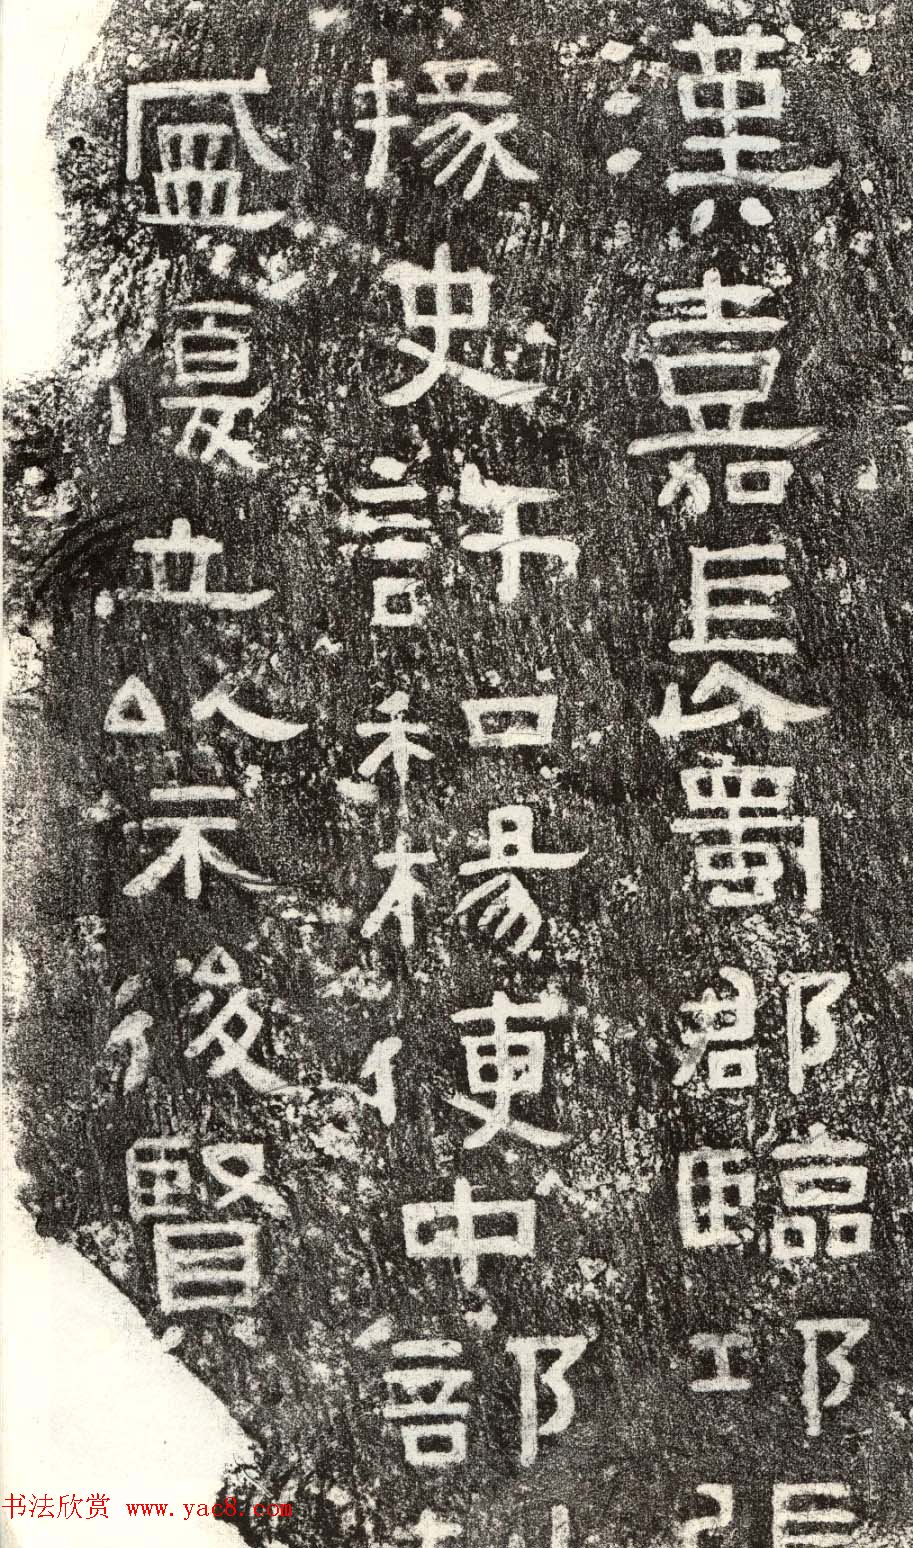 漢嘉長蜀郡臨邛張
掾史許和楊便中部
盛復立以示後賢
书法欣赏 www.yac8.com